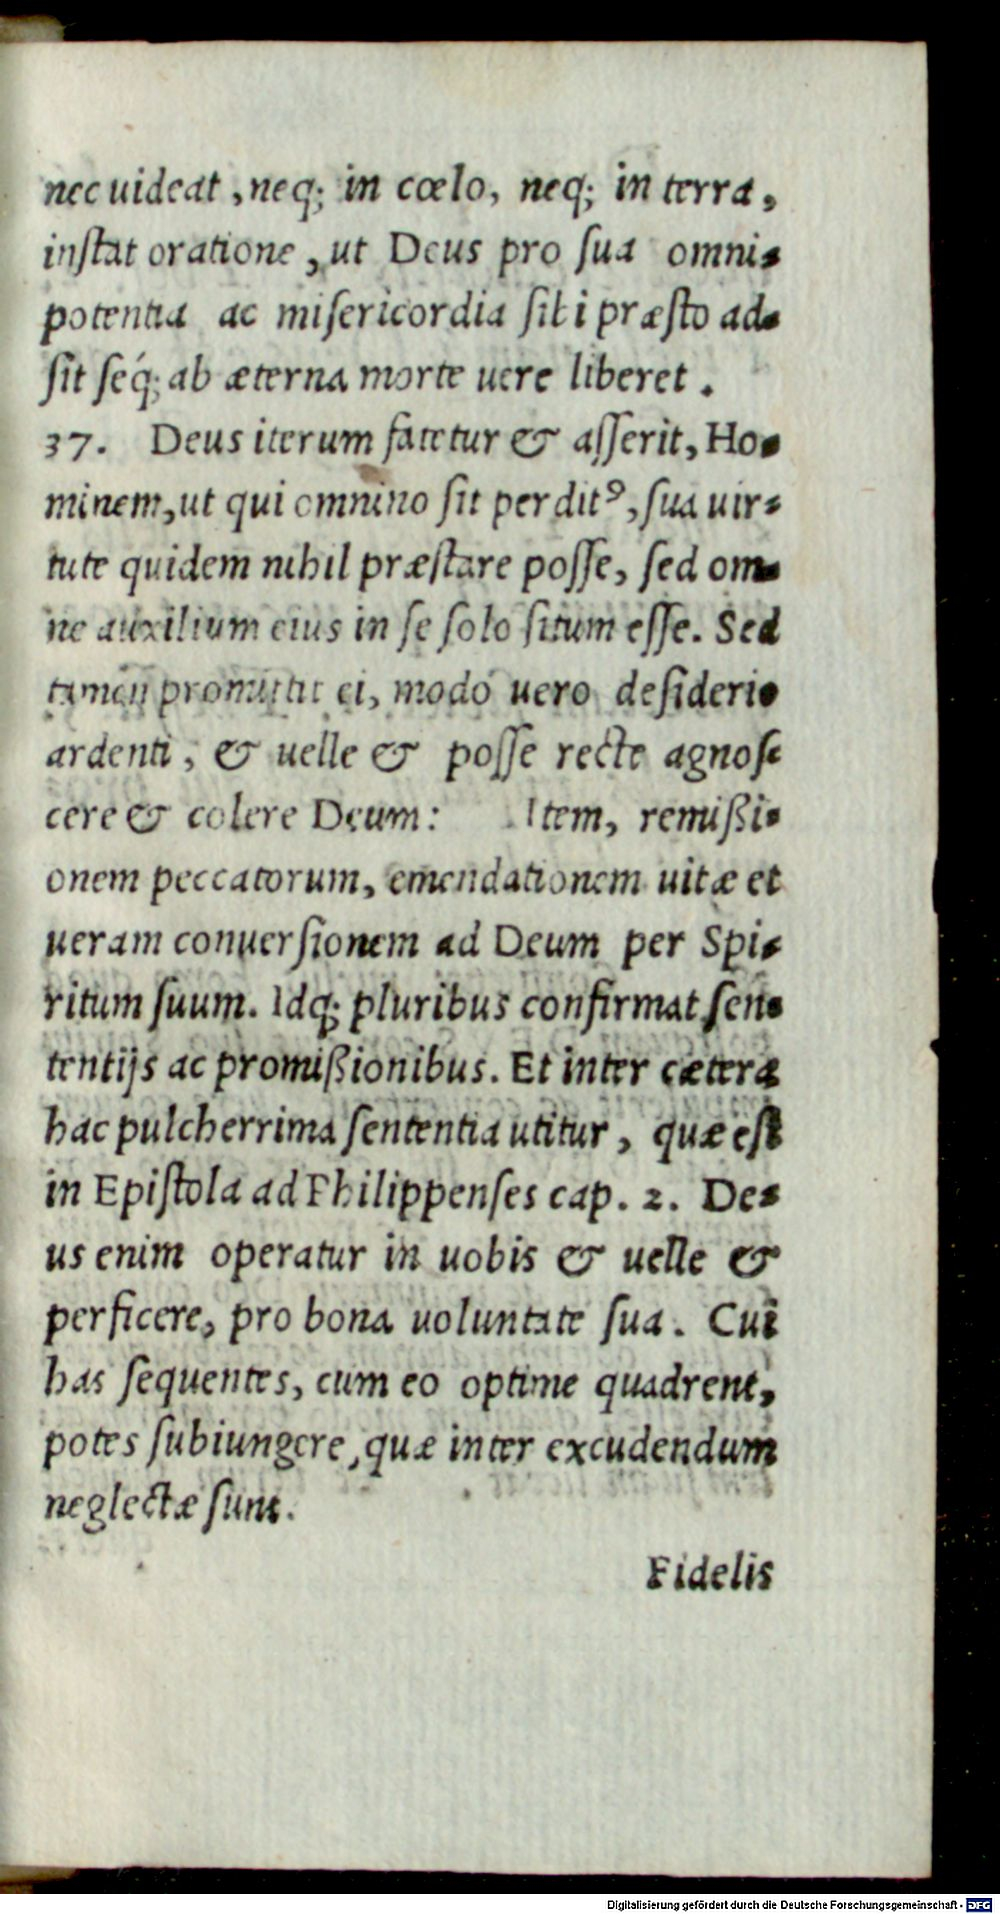 nec uideat, neq; in cœlo, neq; in terra,
inſtat oratione, ut Deus pro ſua omni-
potentia ac miſericordia ſibi præſto ad-
ſit ſéq; ab æterna morte uere liberet.
37. Deus iterum fatetur & aſſerit, Ho-
minem, ut qui omnino ſit perditꝰ, ſua uir-
tute quidem nihil præſtare poſſe, ſed om-
ne auxilium eius in ſe ſolo ſitum eſſe. Sed
tamen promittit ei, modò uero deſiderio
ardenti, & uelle & poſſe recte agnoſ
cere & colere Deum: Item, remißi-
onem peccatorum, emendationem uitæ et
ueram conuerſionem ad Deum per Spi-
ritum ſuum. Idq; pluribus confirmat ſen-
tentijs ac promißionibus. Et inter cætera
hac pulcherrima ſententia utitur, quæ eſt
in Epiſtola ad Philippenſes cap. 2. De-
us enim operatur in uobis & uelle &
perficere, pro bona uoluntate ſua. Cui
has ſequentes, cum eo optime quadrent,
potes ſubiungere, quæ inter excudendum
neglectæ ſunt.
Fidelis
Digitalisierung gefördert durch die Deutsche Forschungsgemeinschaft - DFG